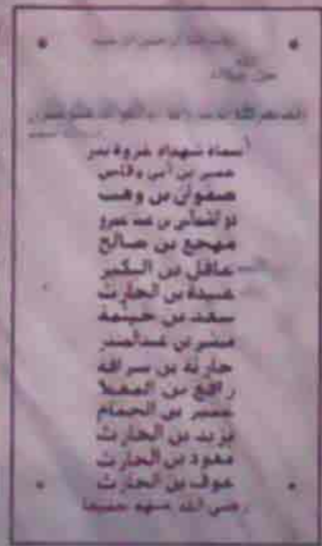 بسم الله الرحمن الرحيم
الله
جل جلاله
ولقد نصركم الله ببدر وانتم
أسماء شهداء غزوة بدر
عمير بن أبي وقاص
صفوان بن وهب
ذو الشمالين بن عبد عمرو
مهجع بن صالح
عاقل بن البكير
عبيدة بن الحارث
سعد بن خيثمة
مبشر بن عبدالمنذر
حارثة بن سراقة
رافع بن المعلا
عمير بن الحمام
يزيد بن الحارث
معوذ بن الحارث
عوف بن الحارث
رضي الله عنهم جميعا